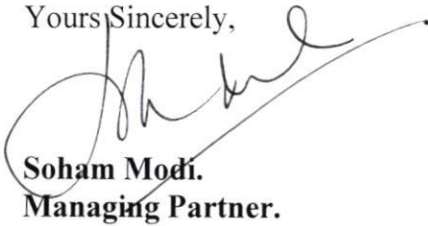 Yours Sincerely,
Soham Modi.
Managing Partner.